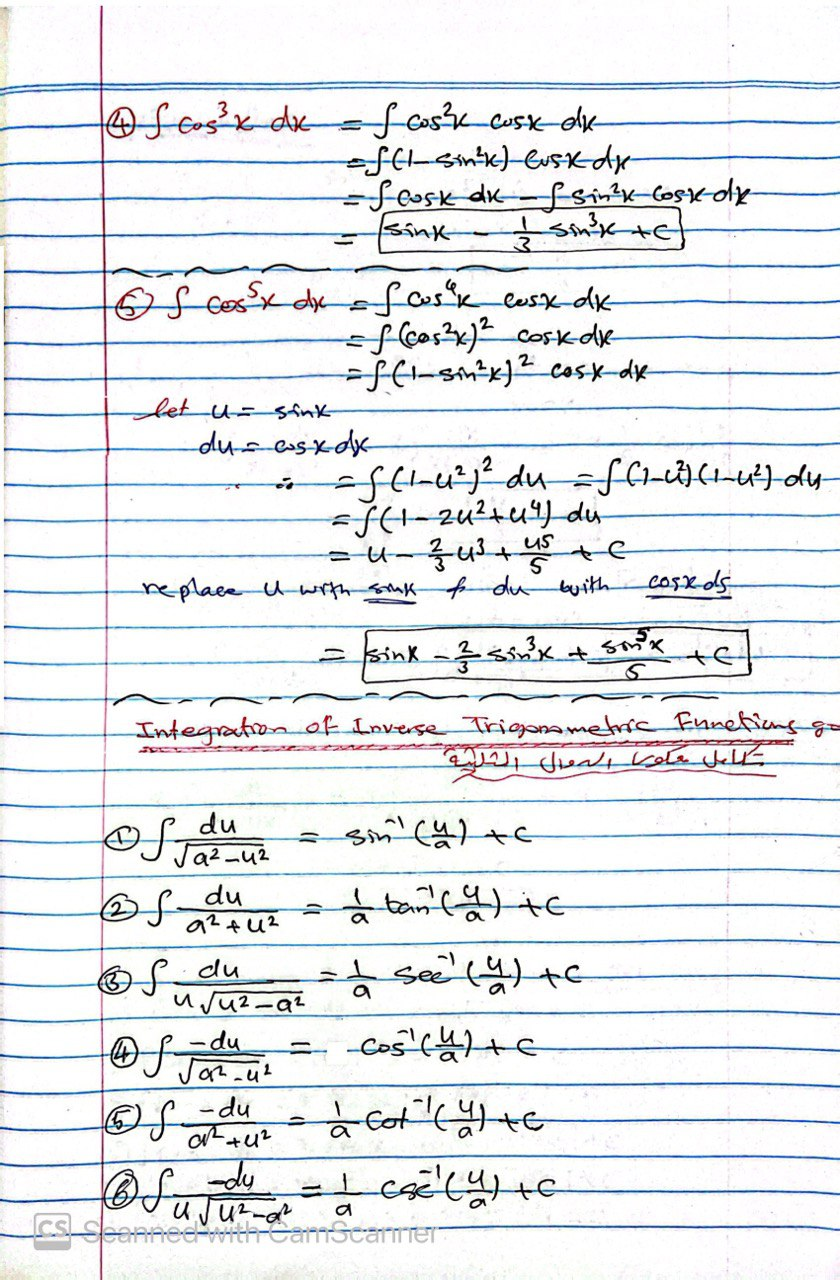 ④ ∫ cos³x dx = ∫ cos²x cosx dx
= ∫(1 - sin²x) cosx dx
= ∫ cosx dx - ∫ sin²x cosx dx
= sinx - 1/3 sin³x + C
⑤ ∫ cos⁵x dx = ∫ cos⁴x cosx dx
= ∫ (cos²x)² cosx dx
= ∫ (1 - sin²x)² cosx dx
let u = sinx
du = cosx dx
∴ = ∫(1-u²)² du = ∫(1-u²)(1-u²) du
= ∫(1 - 2u² + u⁴) du
= u - 2/3 u³ + u5/5 + C
replace u with sinx & du with cosx ds
= sinx - 2/3 sin³x + sin⁵x/5 + C
Integration of Inverse Trigonometric Functions
تكامل الدوال المثلثية
① ∫ du/√(a²-u²) = sin⁻¹(u/a) + C
② ∫ du/(a²+u²) = 1/a tan⁻¹(u/a) + C
③ ∫ du/(u√(u²-a²)) = 1/a sec⁻¹(u/a) + C
④ ∫ -du/√(a²-u²) = cos⁻¹(u/a) + C
⑤ ∫ -du/(a²+u²) = 1/a cot⁻¹(u/a) + C
⑥ ∫ -du/(u√(u²-a²)) = 1/a csc⁻¹(u/a) + C
CS Scanned with CamScanner